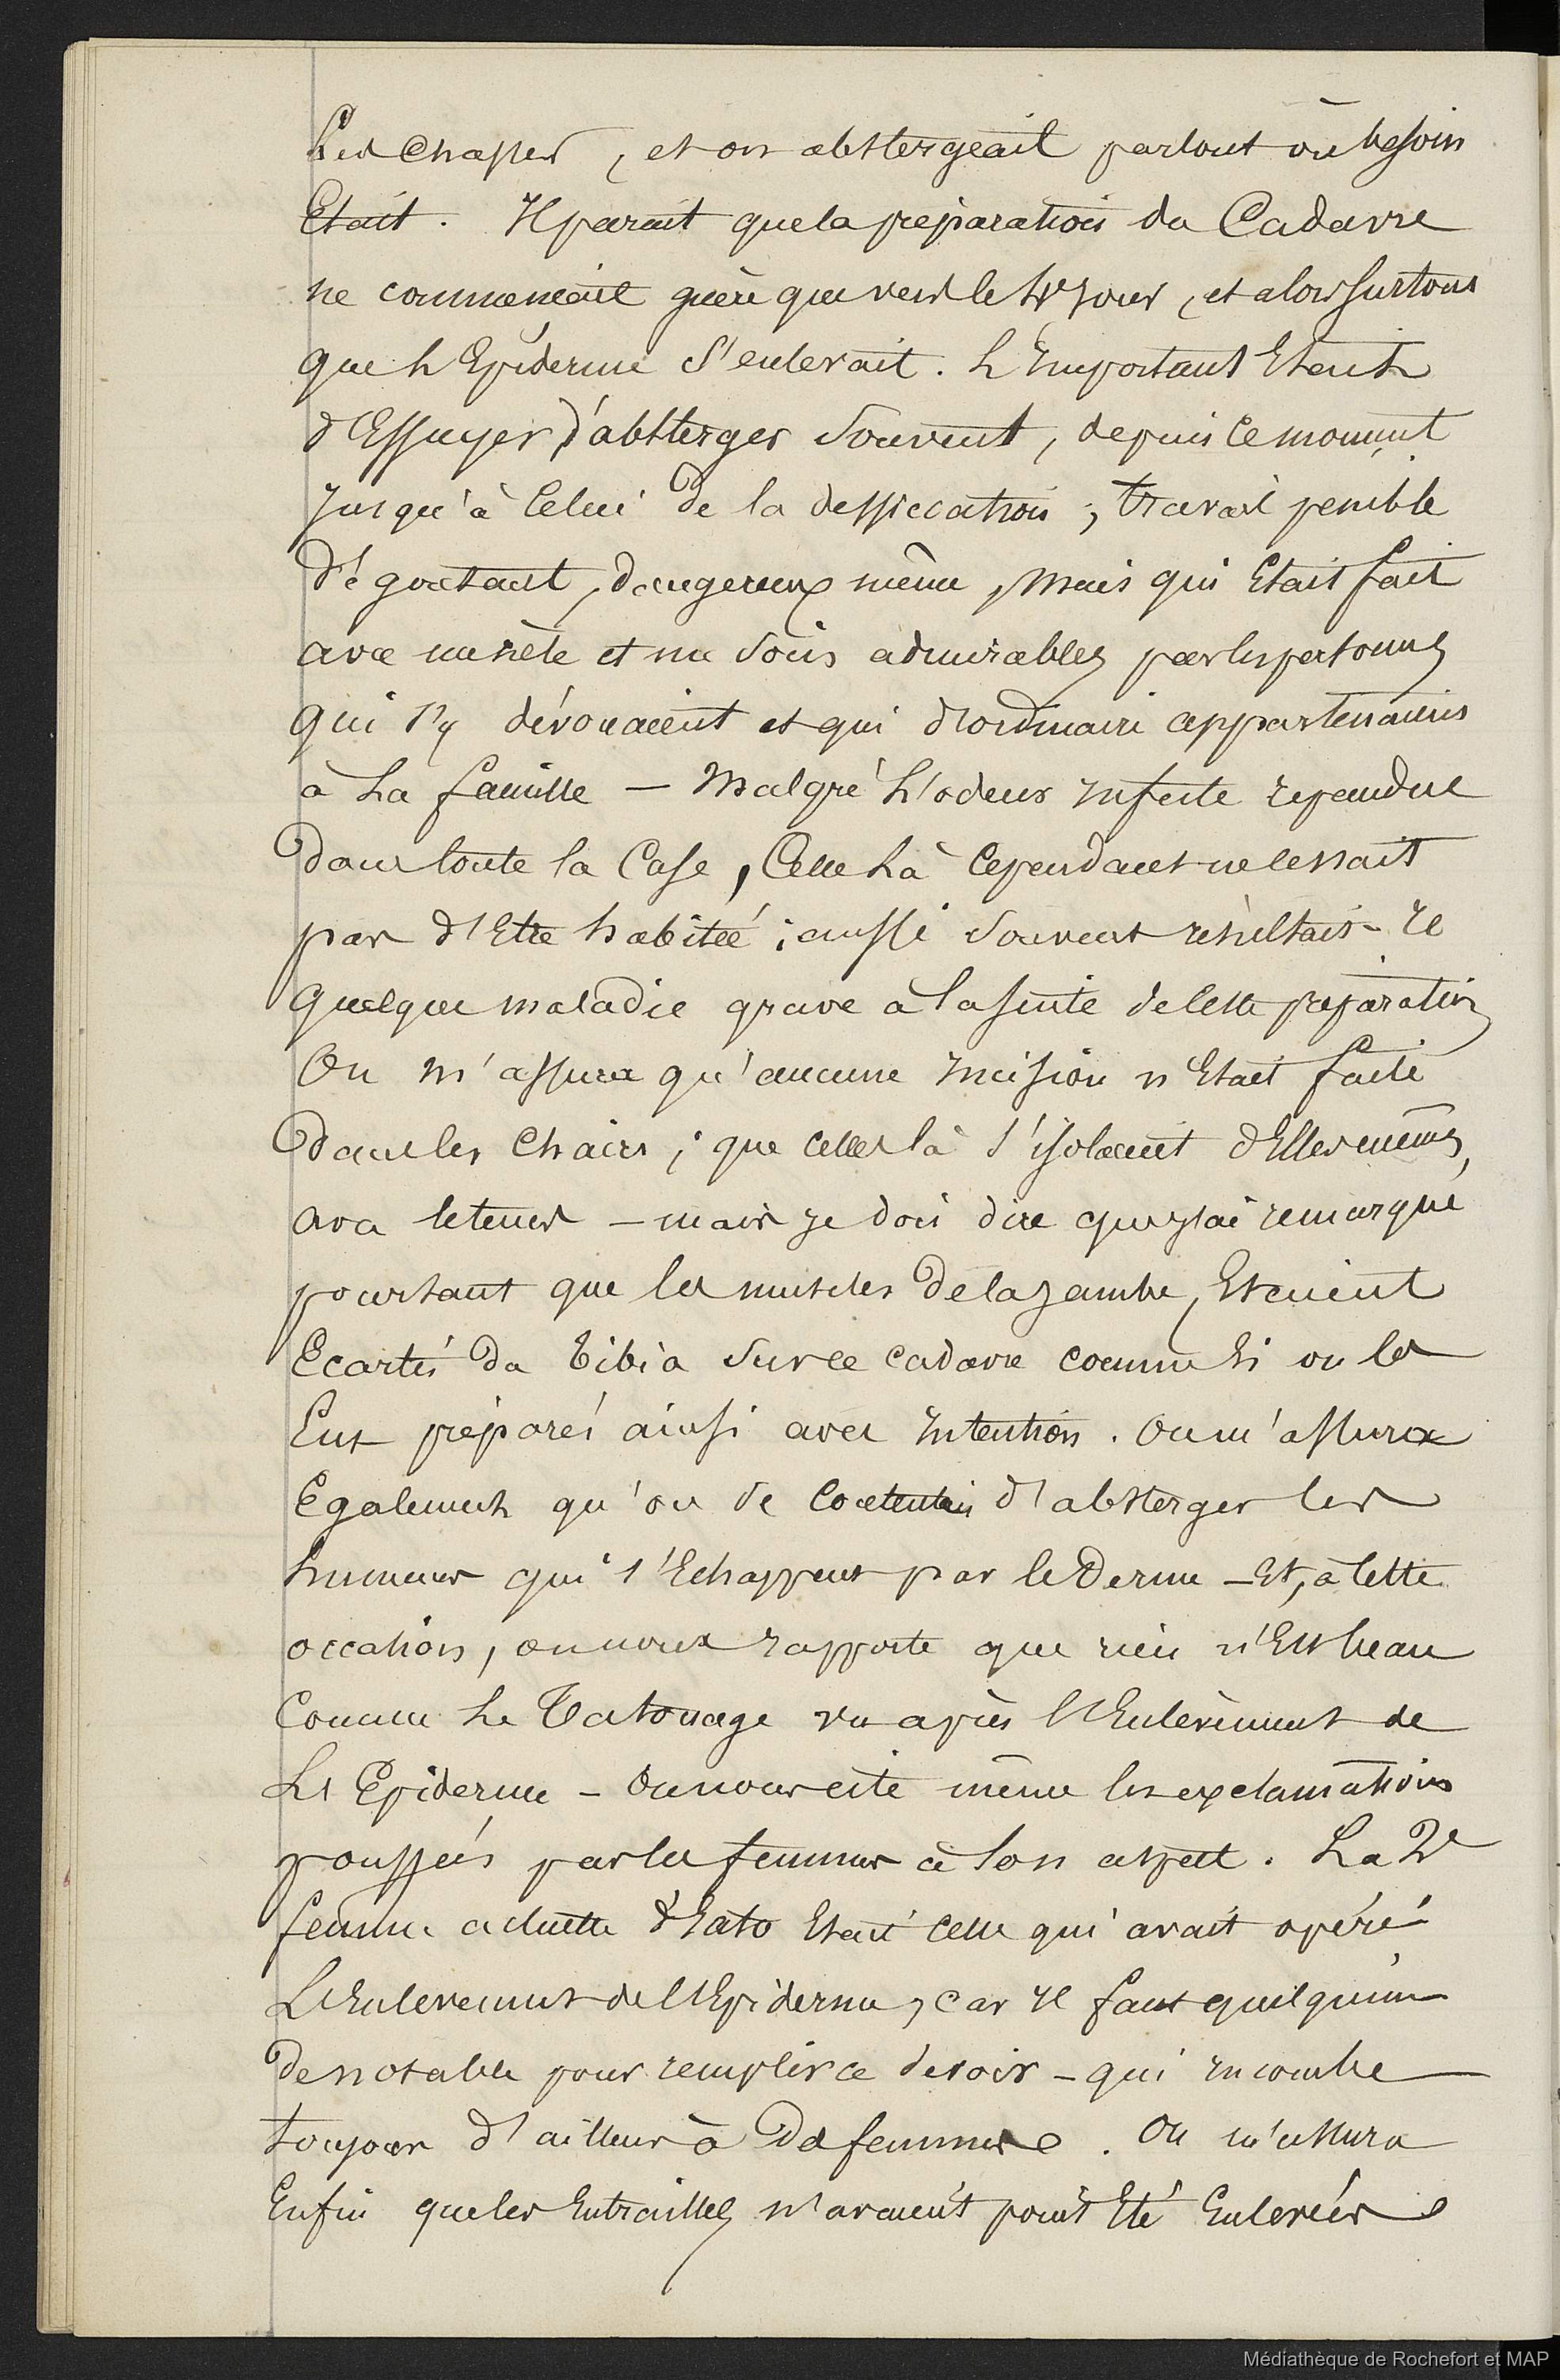 les chapes, et on abstergeait partout où besoin
Etait. Il parait que la préparation du Cadavre
ne commencait guère que vers le 4e jour, et alors surtout
que l'Epiderme s'enlevait. L'Important Etait
d'Essuyer, d'absterger souvent, depuis ce moment
jusqu'à celui de la dessiccation; travail penible
dégoutant, dangereux même, mais qui Etait fait
avec un zèle et un soin admirables par les personnes
qui s'y dévouaient et qui d'ordinaire appartenaient
à la famille — Malgré l'odeur infecte repandue
dans toute la Case, Celle là cependant ne cessait
pas d'Etre habitée; aussi souvent résultait-il
quelque maladie grave à la suite de cette préparation
On m'assura qu'aucune incision n'Etait faite
dans les chairs; que celles là s'isolaient d'Elles mêmes,
avec le tems — mais je dois dire que j'ai remarqué
pourtant que les muscles de la jambe, Etaient
Ecartés du Tibia sur ce cadavre comme si on les
Eut préparés ainsi avec intention. On m'assura
Egalement qu'on se contentait d'absterger les
humeurs qui s'Echappent par le derme — Et, à cette
occasion, on nous rapporte que rien n'Est beau
Comme le Tatouage vu après l'Enlèvement de
l'Epiderme — On nous cite même les exclamations
poussées par les femmes à son aspect. La 2e
femme actuelle d'Eato Etait celle qui avait opéré
L'Enlevement de l'Epiderme, car il faut quelqu'un
de notable pour remplir ce devoir — qui incombe
toujours d'ailleurs à des femmes. On m'assura
Enfin que les Entrailles n'avaient point Eté Enlevées
Médiathèque de Rochefort et MAP